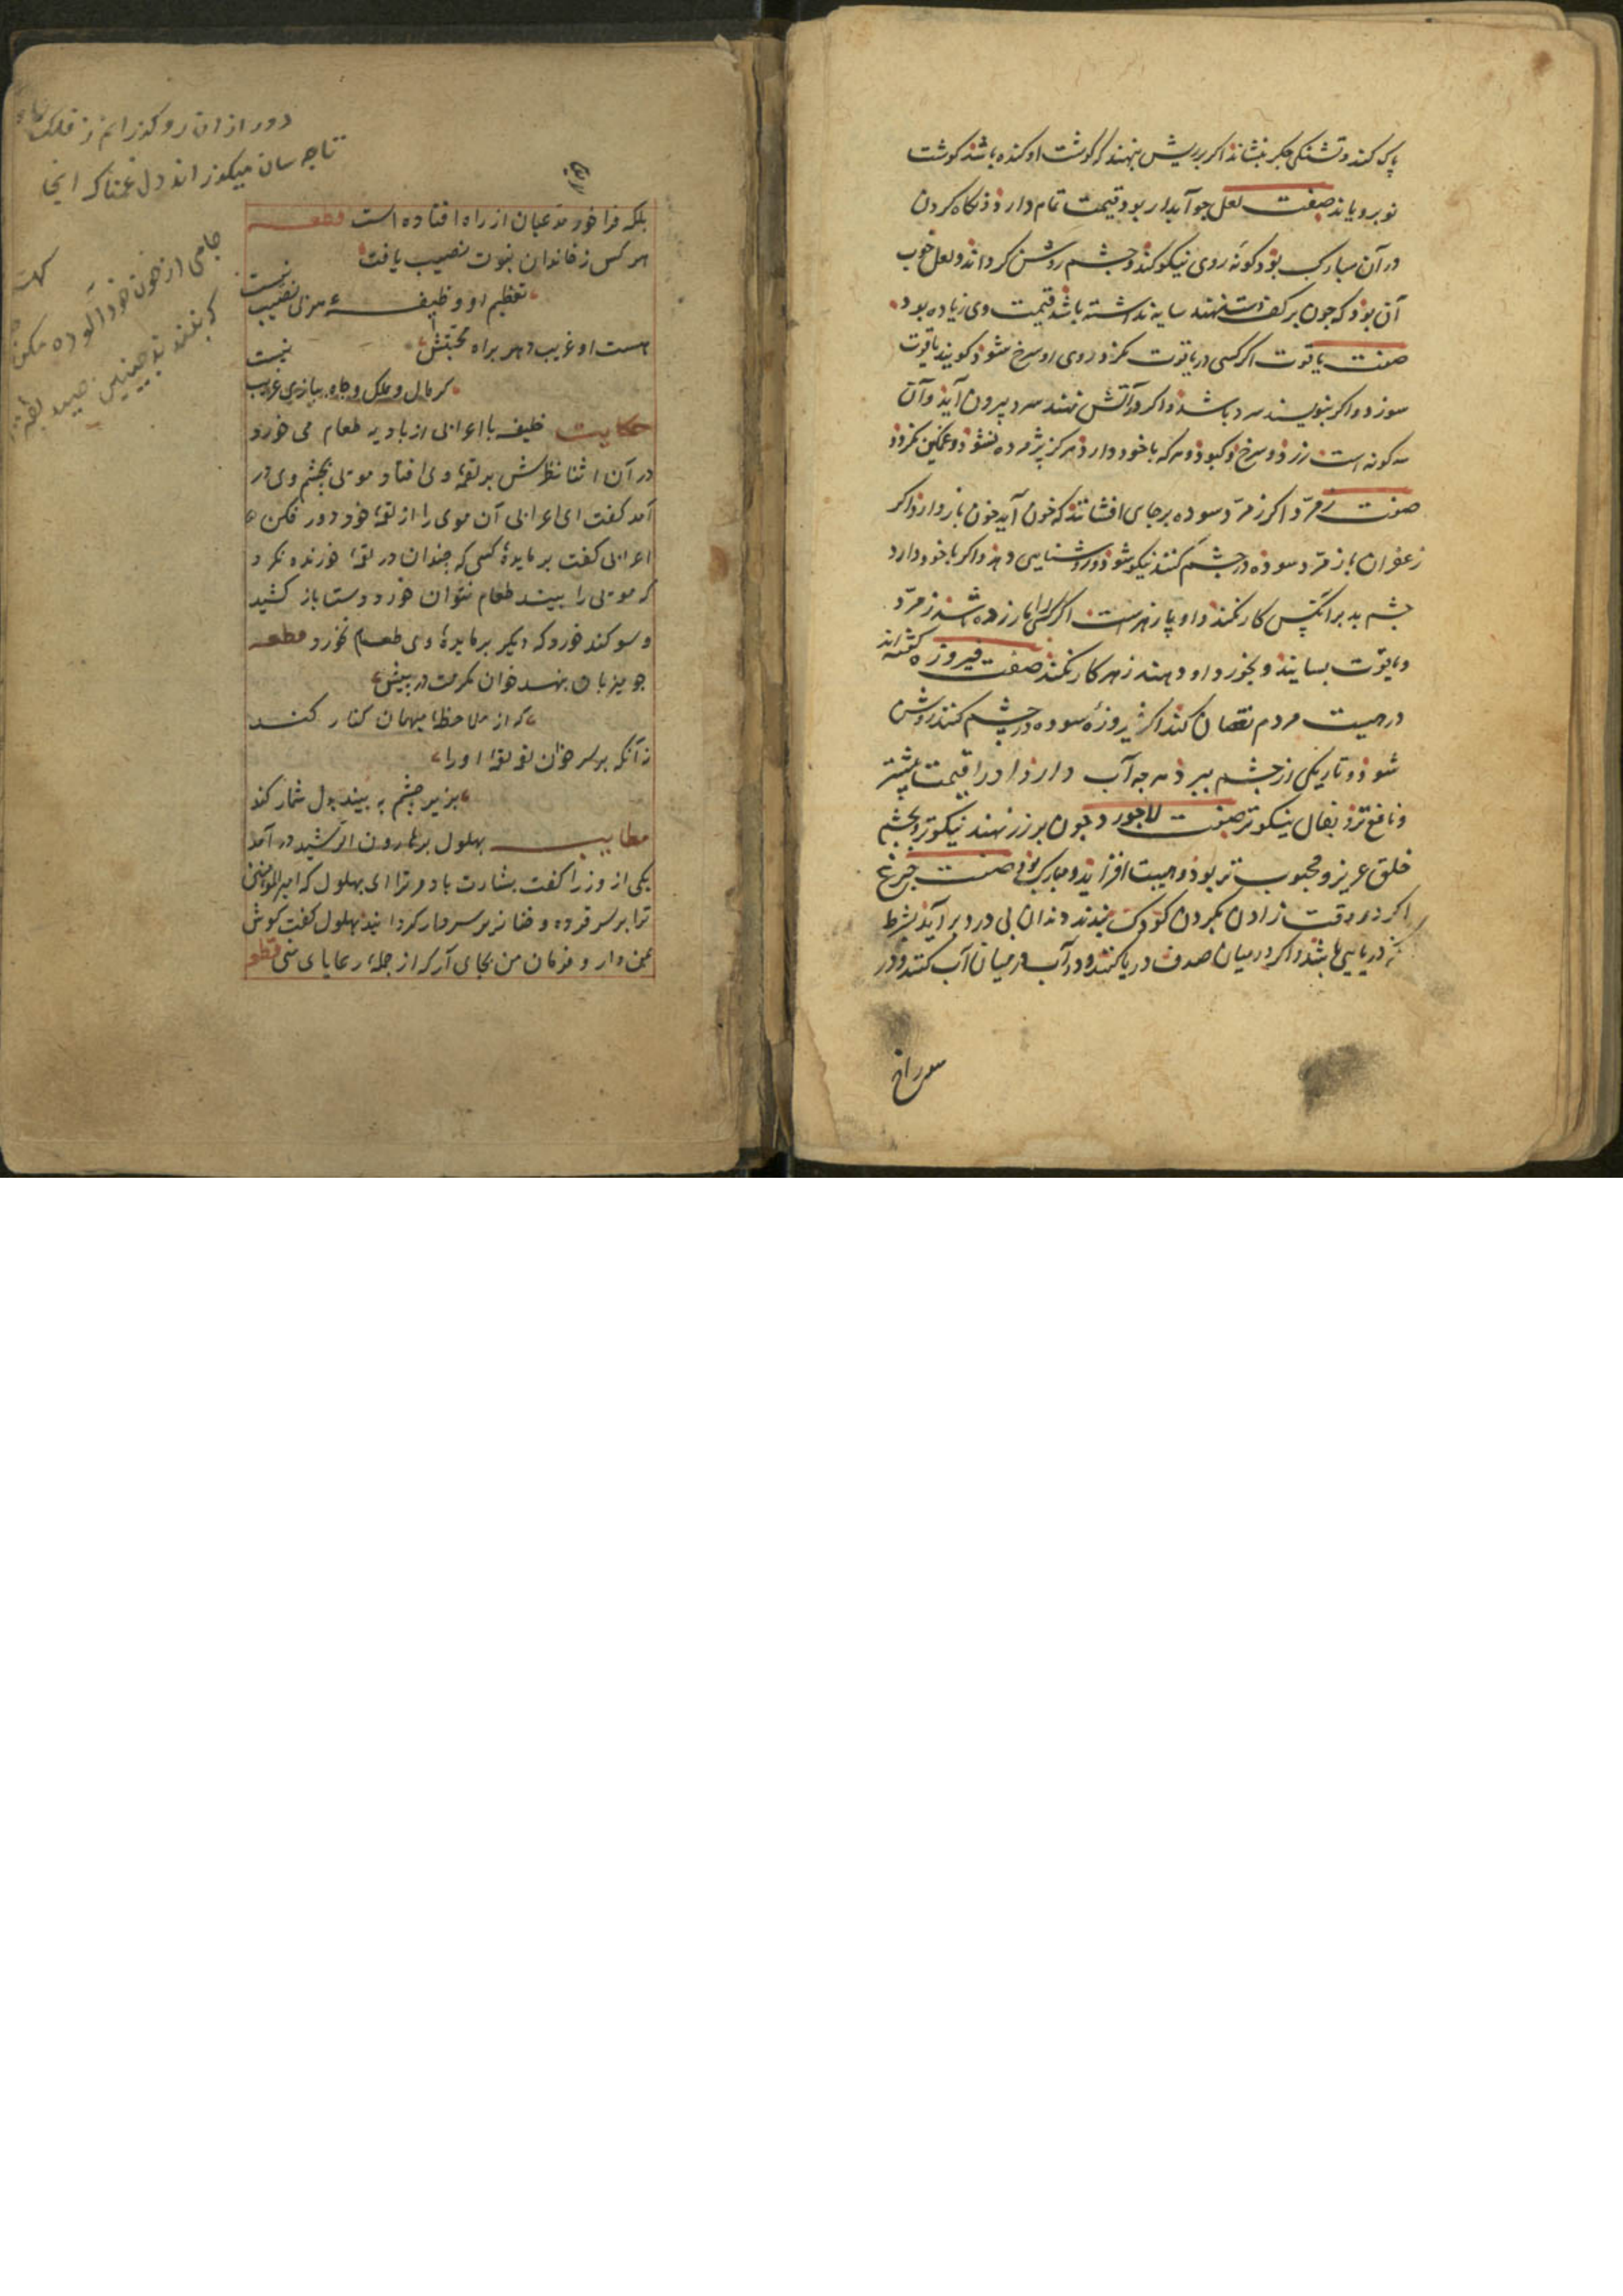 پاک کند و تشنگی جگر بنشاند اکر بر ریش نهند که کوشت او کنده باشد کوشت
نو برویاند صفت لعل جو آبدار بود قیمت تمام دارد ذ نکاه کردن
در آن مبارک بوذ و کونه روی نیکو کند و چشم روشن کرداند و لعل خوب
آن بوذ که جون بر کف دست نهند سایه نداشته باشد قیمت وی زیاده بود
صفت یاقوت اکر کسی در یاقوت نکرد روی او سرخ شود کویند یاقوت
سوزد و اکر بنویسند سرد باشد و اکر در آتش نهند سرد بیرون آید و آن
سه کونه است زرد و سرخ و کبود و هر که با خود دارد هرکز پژمرده نشود و غمکین نکردد
صفت زمرّد اکر زمرّد سوده بر جای افشانند که خون آید خون باز دارد و اکر
زعفران باز مرد سوده در چشم کنند نیکو شود و روشنایی دهد و اکر با خود دارد
چشم بد بر آنکس کار نکند و او پازهر است اکر کسی را مار زده باشد زمرّد
و یاقوت بسایند و بخورد او دهند زهر کار نکند صفت فیروزه کفته اند
در هیبت مردم نقصان کند اکر فیروزه سوده در چشم کنند روشن
شود و تاریکی از چشم ببرد هر چه آب دارد او را قیمت بیشتر
و نافع ترو بفال نیکوتر صفت لاجورد جون بر زر نهند نیکوتر و بچشم
خلق عزیز و محبوب تر بود و هیبت افزاید و مبارک بود صفت جزع
اکر در وقت زادن بکردن کودک بندند دندان بی درد بر آید بشرط
دریایی باشد و اکر در میان صدف دریا کنند و در آب در میان آب کنند و در
سوراخ
دور از ان رو کذرانم ز فلک
تا چه سان میکوزراند دل غمناک انجا
جامی از خون خود آلوده مکن
بلکه فرا خور مدعیان از راه افتاده است قطعه
هر کس ز خاندان نبوت نصیب یافت
تعظیم او وظیفهٔ هر بی نصیب نیست
هست او غریب دهر براه محبتش
کر مال و ملک و جاه ببازی غریب نیست
حکایت خلیفه با اعرابی از بادیه طعام می خورد
در آن اثنا نظرش بر لقمهٔ وی افتاد مویی بچشم وی در
آمد کفت ای اعرابی آن موی را از لقمهٔ خود دور فکن
اعرابی کفت بر مایدهٔ کسی که چندان در لقمهٔ خورنده نکرد
که مویی را بیند طعام نتوان خورد و دست باز کشید
و سوکند خورد که دیکر بر مایدهٔ وی طعام نخورد قطعه
جو میزبان بنهد خوان مکرمت در پیش
که از ملاحظهٔ میهمان کنار کند
زآنکه بر سر خوان لقمه لقمهٔ او را
بزیر چشم به بیند بدل شمار کند
مطایبه بهلول بر هارون الرشید در آمد
یکی از وزرا کفت بشارت باد مر ترا ای بهلول که امیر المومنین
ترا بر سر قرده و خنازیر سردار کردانید بهلول کفت کوش
بمن دار و فرمان من بجای آر که از جمله رعایای منی قطعه